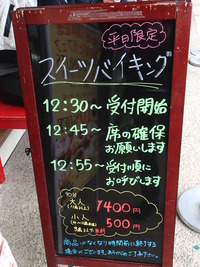 平日限定
スイーツバイキング
12:30～受付開始
12:45～席の確保
お願いします
12:55～受付順に
お呼びします
90分
大人
1400円
小人
500円
商品がなくなり次第終了する
場合がございます。あらかじめご了承下さい。